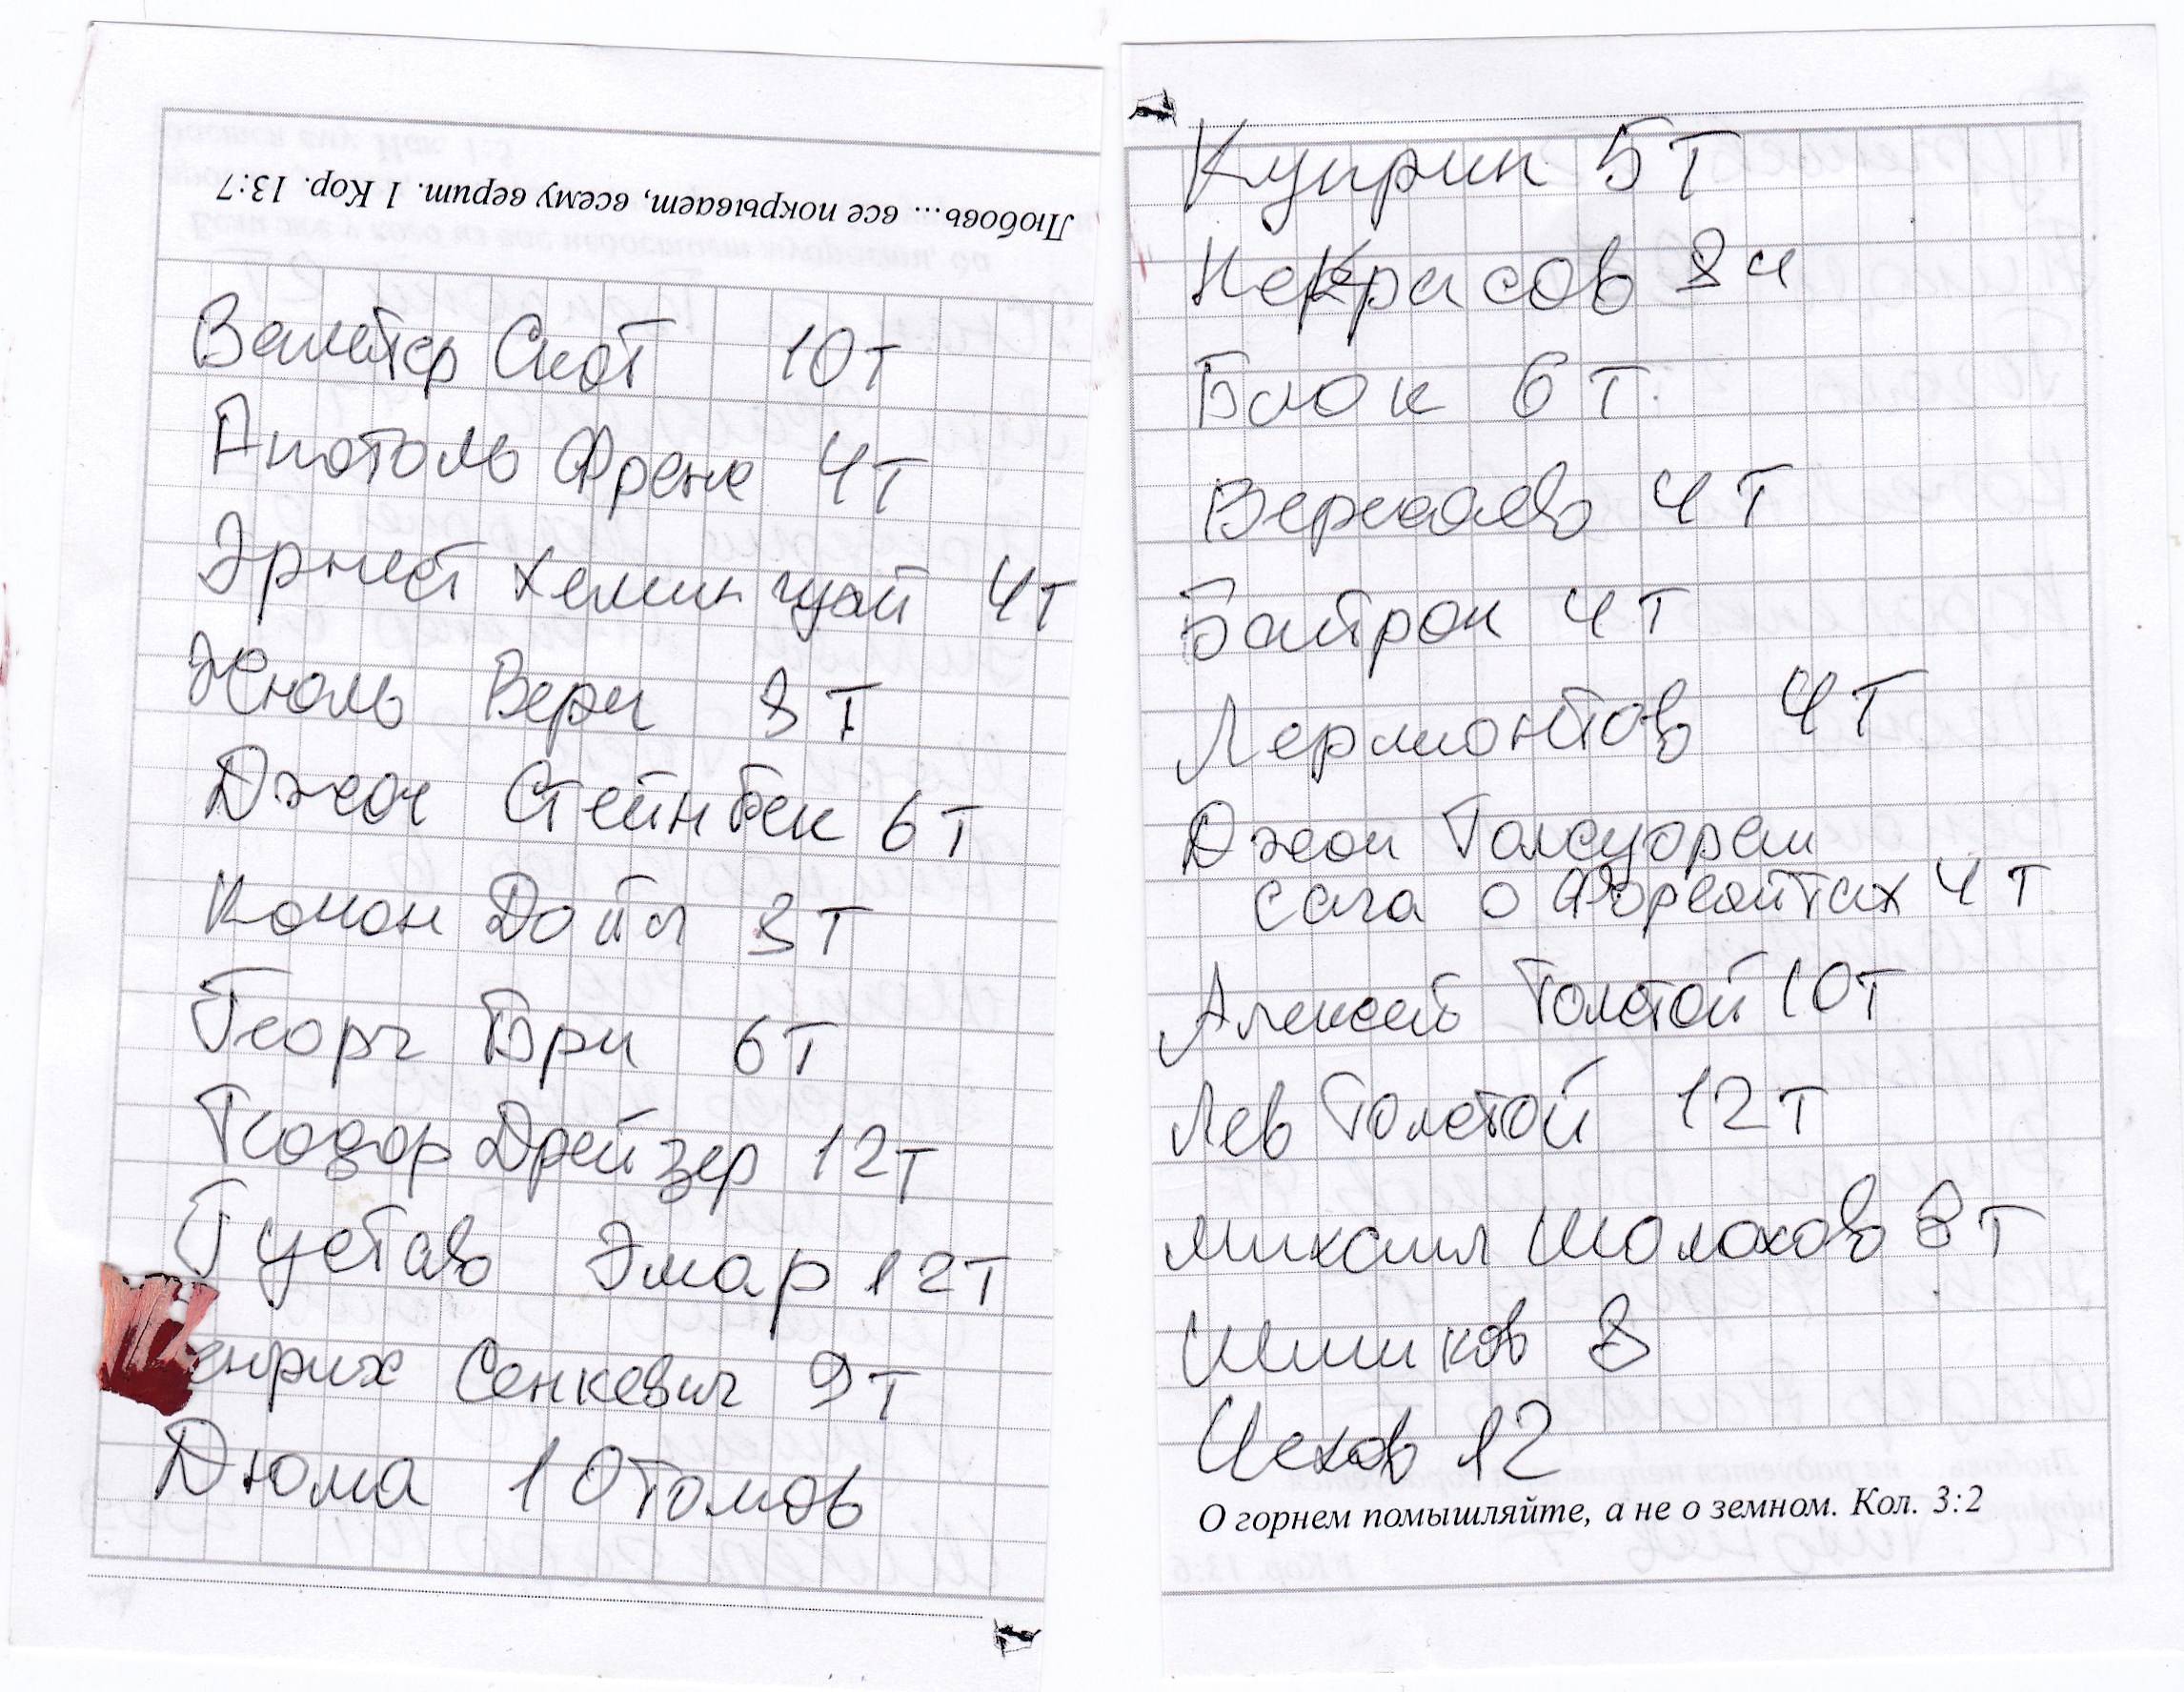 Любовь... все покрывает, всему верит. 1 Кор. 13:7
Вальтер Скот 10т
Анатоль Френс 4т
Эрнест Хемингуэй 4т
Жюль Верн 8 т
Джон Стейнбек 6 т
Конан Дойл 8 т
Георг Бэрн 6т
Теодор Дрейзер 12т
Густав Эмар 12т
енрих Сенкевич 9 т
Дюма 10 томов
Куприн 5 т
Некрасов 8
Блок 6 т.
Вересаев 4 т
Байрон 4 т
Лермонтов 4 т
Джон Голсуорси
сага о Форсайтах 4 т
Алексей Толстой 10т
Лев Толстой 12 т
Михаил Шолохов 8 т
Шишков 8
Чехов 12
О горнем помышляйте, а не о земном. Кол. 3:2